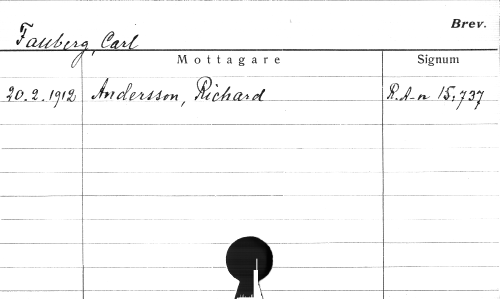 Brev.
Fauberg, Carl
Mottagare Signum
20.2.1912 Andersson, Richard R.A-n 15,737